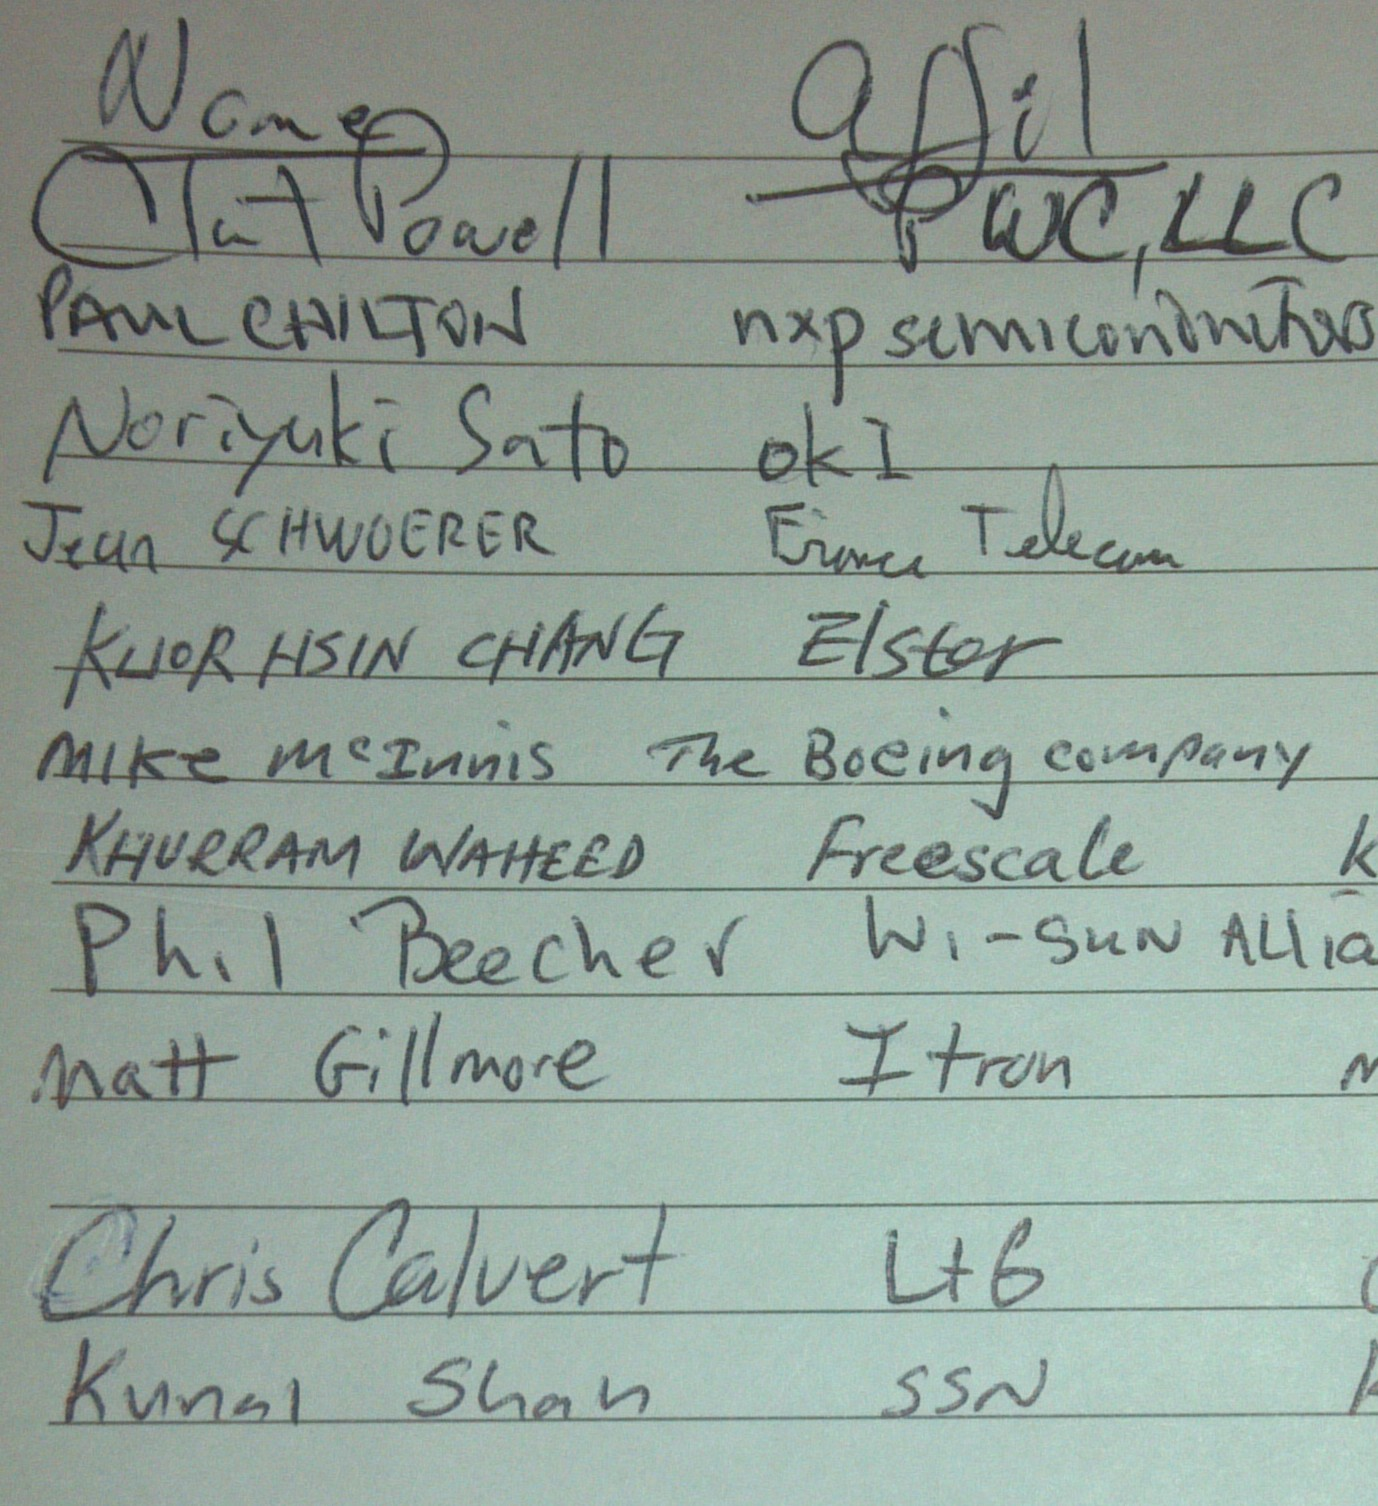 Name Affil
Clint Powell PWC, LLC
PAUL CHILTON nxp semiconductors
Noriyuki Sato OKI
Jean SCHWOERER France Telecom
KUOR HSIN CHANG Elster
MIKE McInnis The Boeing company
KHURRAM WAHEED Freescale K
Phil Beecher Wi-SUN Allia
Matt Gillmore Itron M
Chris Calvert L+G C
Kunal Shah SSN K